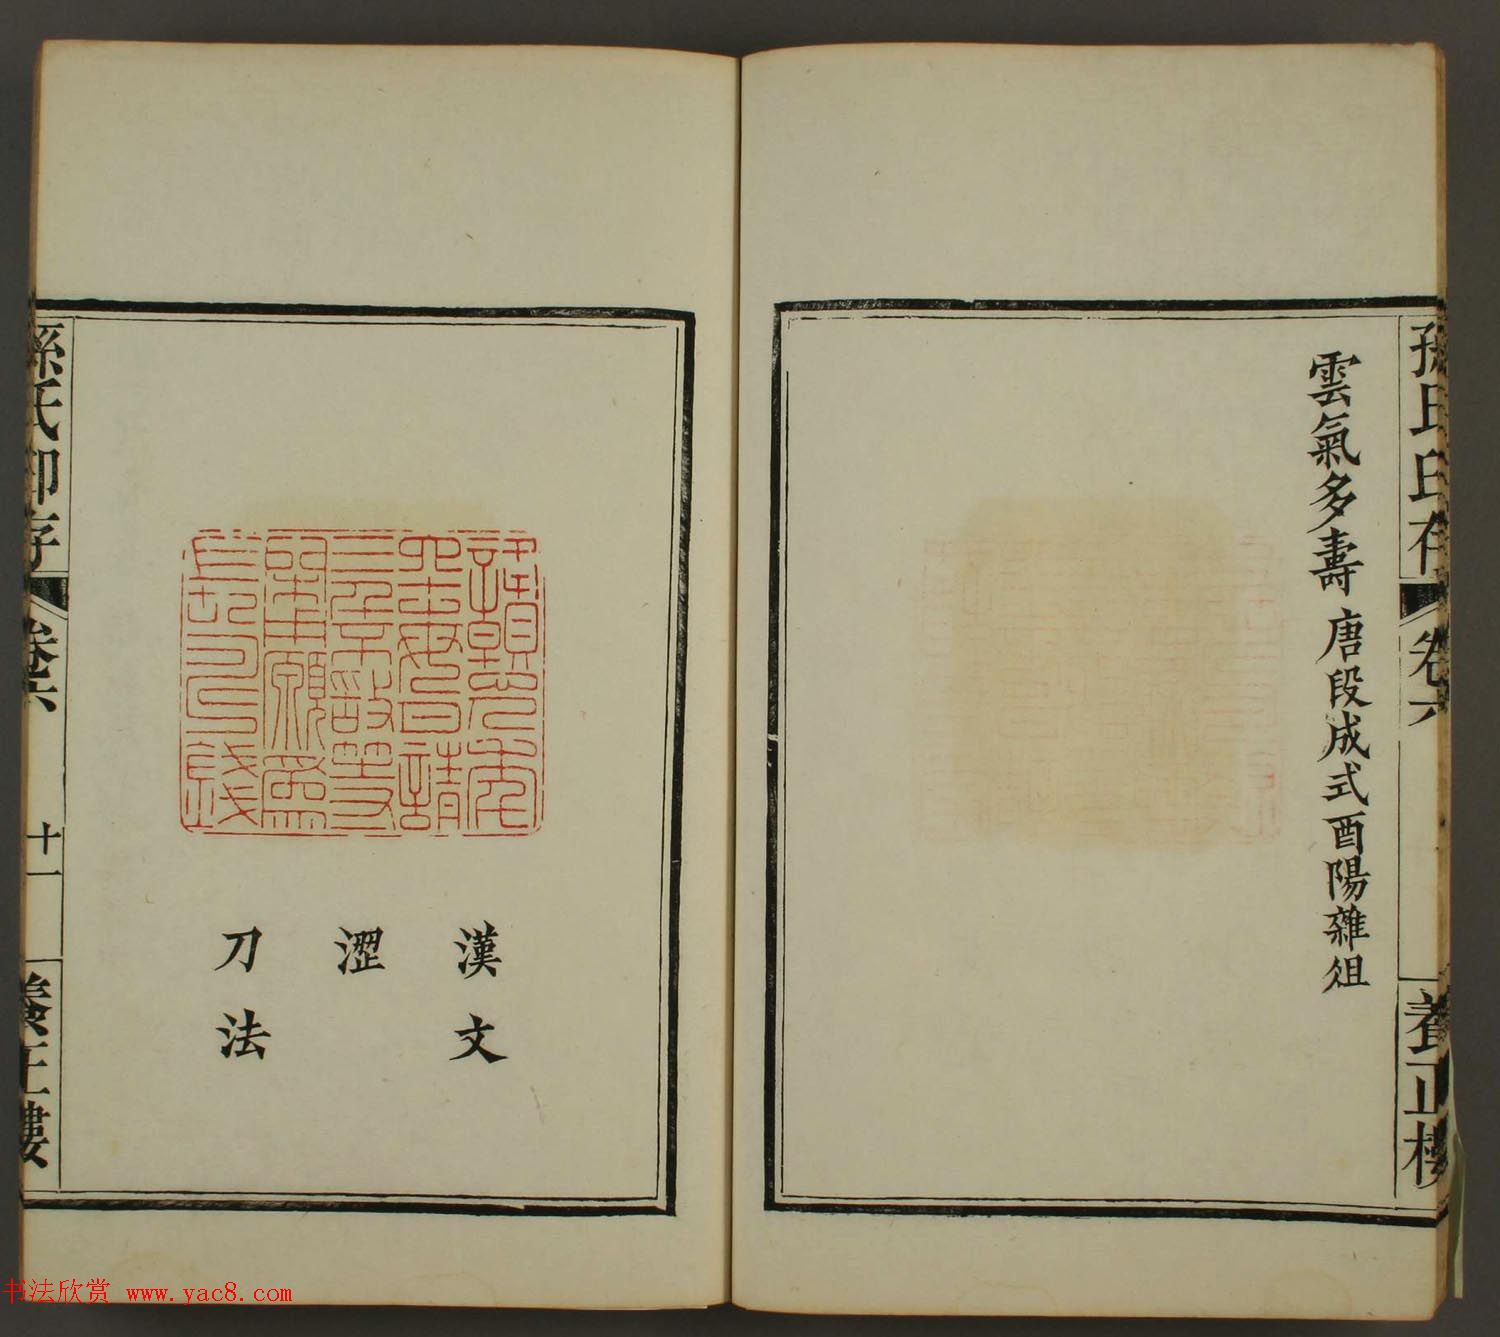 孫氏印存
卷六
養正樓
雲氣多壽 唐段成式酉陽雜俎
漢文
澀
刀法
孫氏印存
卷六
十一
養正樓
书法欣赏 www.yac8.com